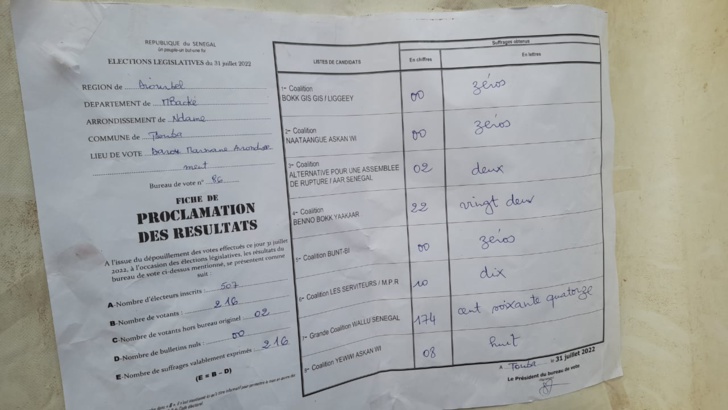 REPUBLIQUE du SENEGAL
Un peuple un but une foi
ELECTIONS LEGISLATIVES du 31 juillet 2022
REGION de Diourbel
DEPARTEMENT de MBacké
ARRONDISSEMENT de Ndame
COMMUNE de Touba
LIEU DE VOTE Darou Marnane
Bureau de vote n° 86
FICHE DE
PROCLAMATION
DES RESULTATS
A l'issue du dépouillement des votes effectués ce jour 31 juillet
2022, à l'occasion des élections législatives, les résultats du
bureau de vote ci-dessus mentionné, se présentent comme
suit :
A-Nombre d'électeurs inscrits : 507
B-Nombre de votants : 216
C-Nombre de votants hors bureau originel : 02
D-Nombre de bulletins nuls : 00
E-Nombre de suffrages valablement exprimés : 216
(E = B - D)
LISTES DE CANDIDATS
Suffrages obtenus
En chiffres
En lettres
1re Coalition
BOKK GIS GIS / LIGGEEY
00
zéros
2e Coalition
NAATAANGUE ASKAN WI
00
zéros
3e Coalition
ALTERNATIVE POUR UNE ASSEMBLEE
DE RUPTURE / AAR SENEGAL
02
deux
4e Coalition
BENNO BOKK YAAKAAR
22
vingt deux
5e Coalition BUNT-BI
00
zéros
6e Coalition LES SERVITEURS / M.P.R
10
dix
7e Grande Coalition WALLU SENEGAL
174
cent soixante quatorze
8e Coalition YEWWI ASKAN WI
08
huit
A Touba le 31 juillet 2022
Le Président du bureau de vote